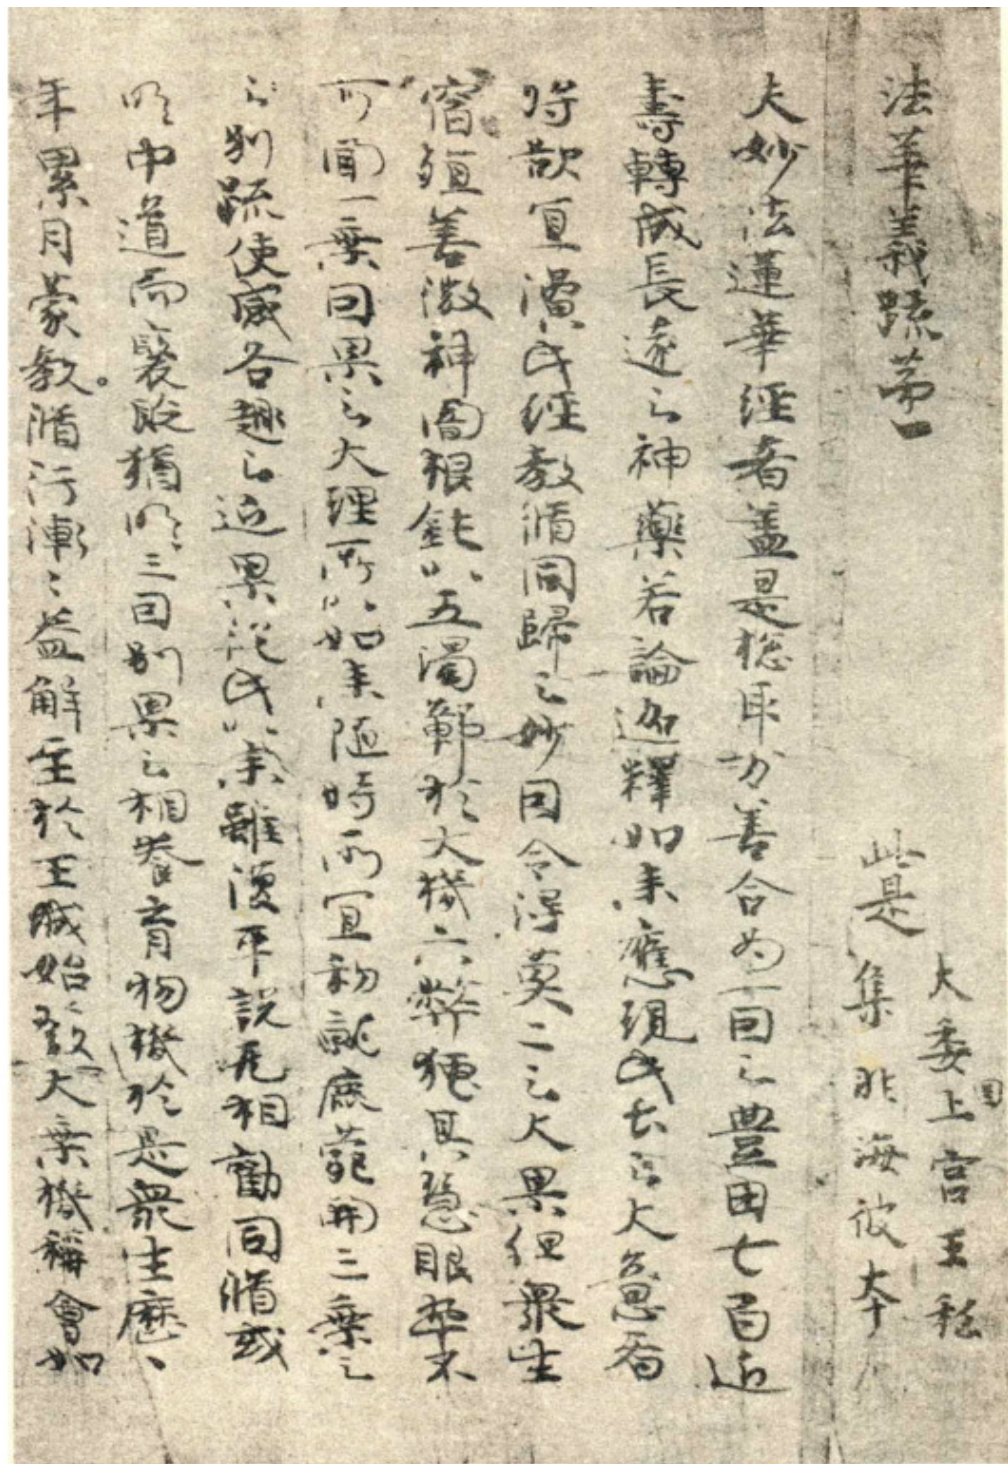 法華義疏第一
此是
大委上宮王私
國
集非海彼本
夫妙法蓮華経者盖是惣取万善合為一因之豊田七百近
壽轉成長遠之神藥若論迦釋如来應現此土之大意者
将欲宜演此経教脩同歸之妙因令得莫二之大果但衆生
宿殖善微神闇根鈍以五濁鄣於大機六弊掩其慧眼卒不
可聞一乗因果之大理所以如来随時所宜初就鹿菀開三乗之
之別疏使感各趣之近果従此以来雖復平説无相勸同脩或
明中道而褒貶猶明三因別果之相養育物機於是衆生歴〻
年累月蒙教脩行漸〻益解至於王城始發大乗機稱會如